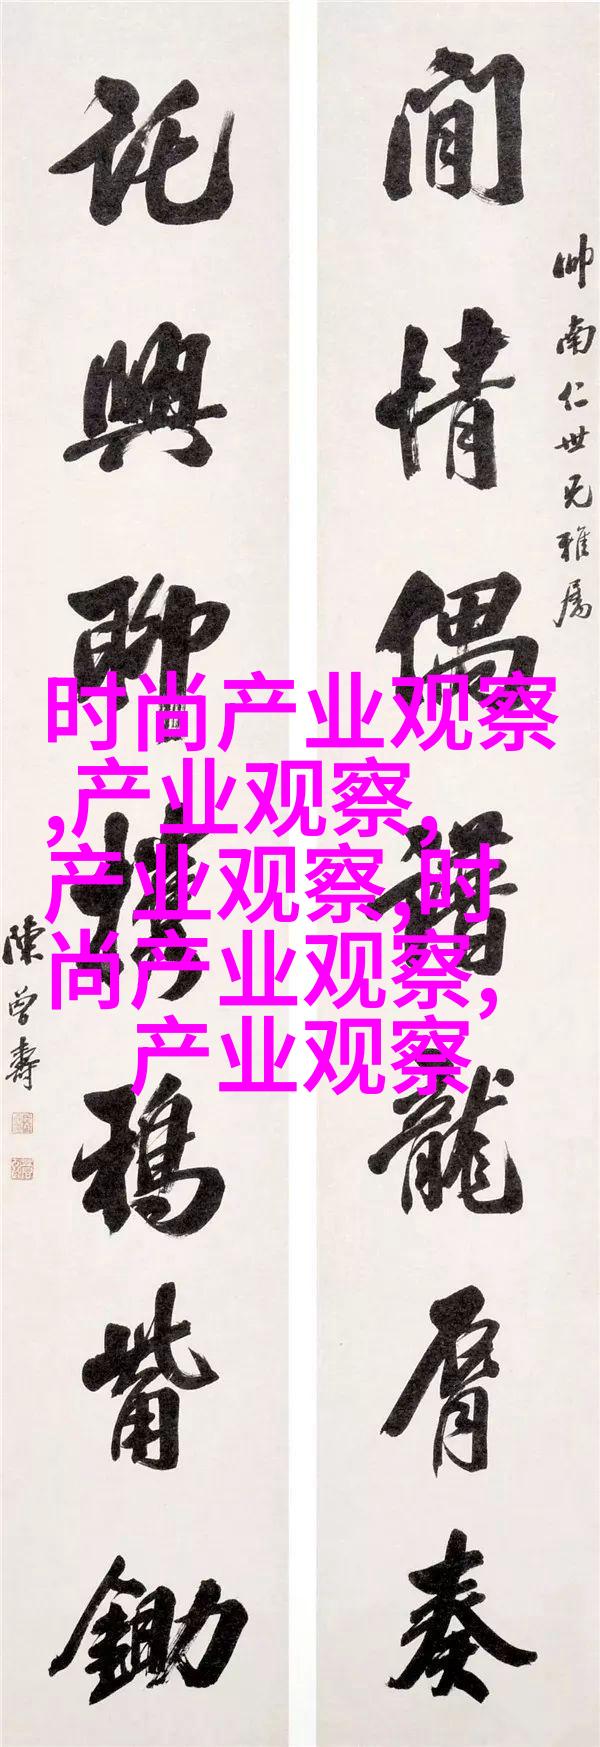 閒情偶藉龍脣奏
帥南仁世兄雅屬
託興聊攜鴉觜鋤
陳曾壽
时尚产业观察
,产业观察,
产业观察,时
尚产业观察,
产业观察